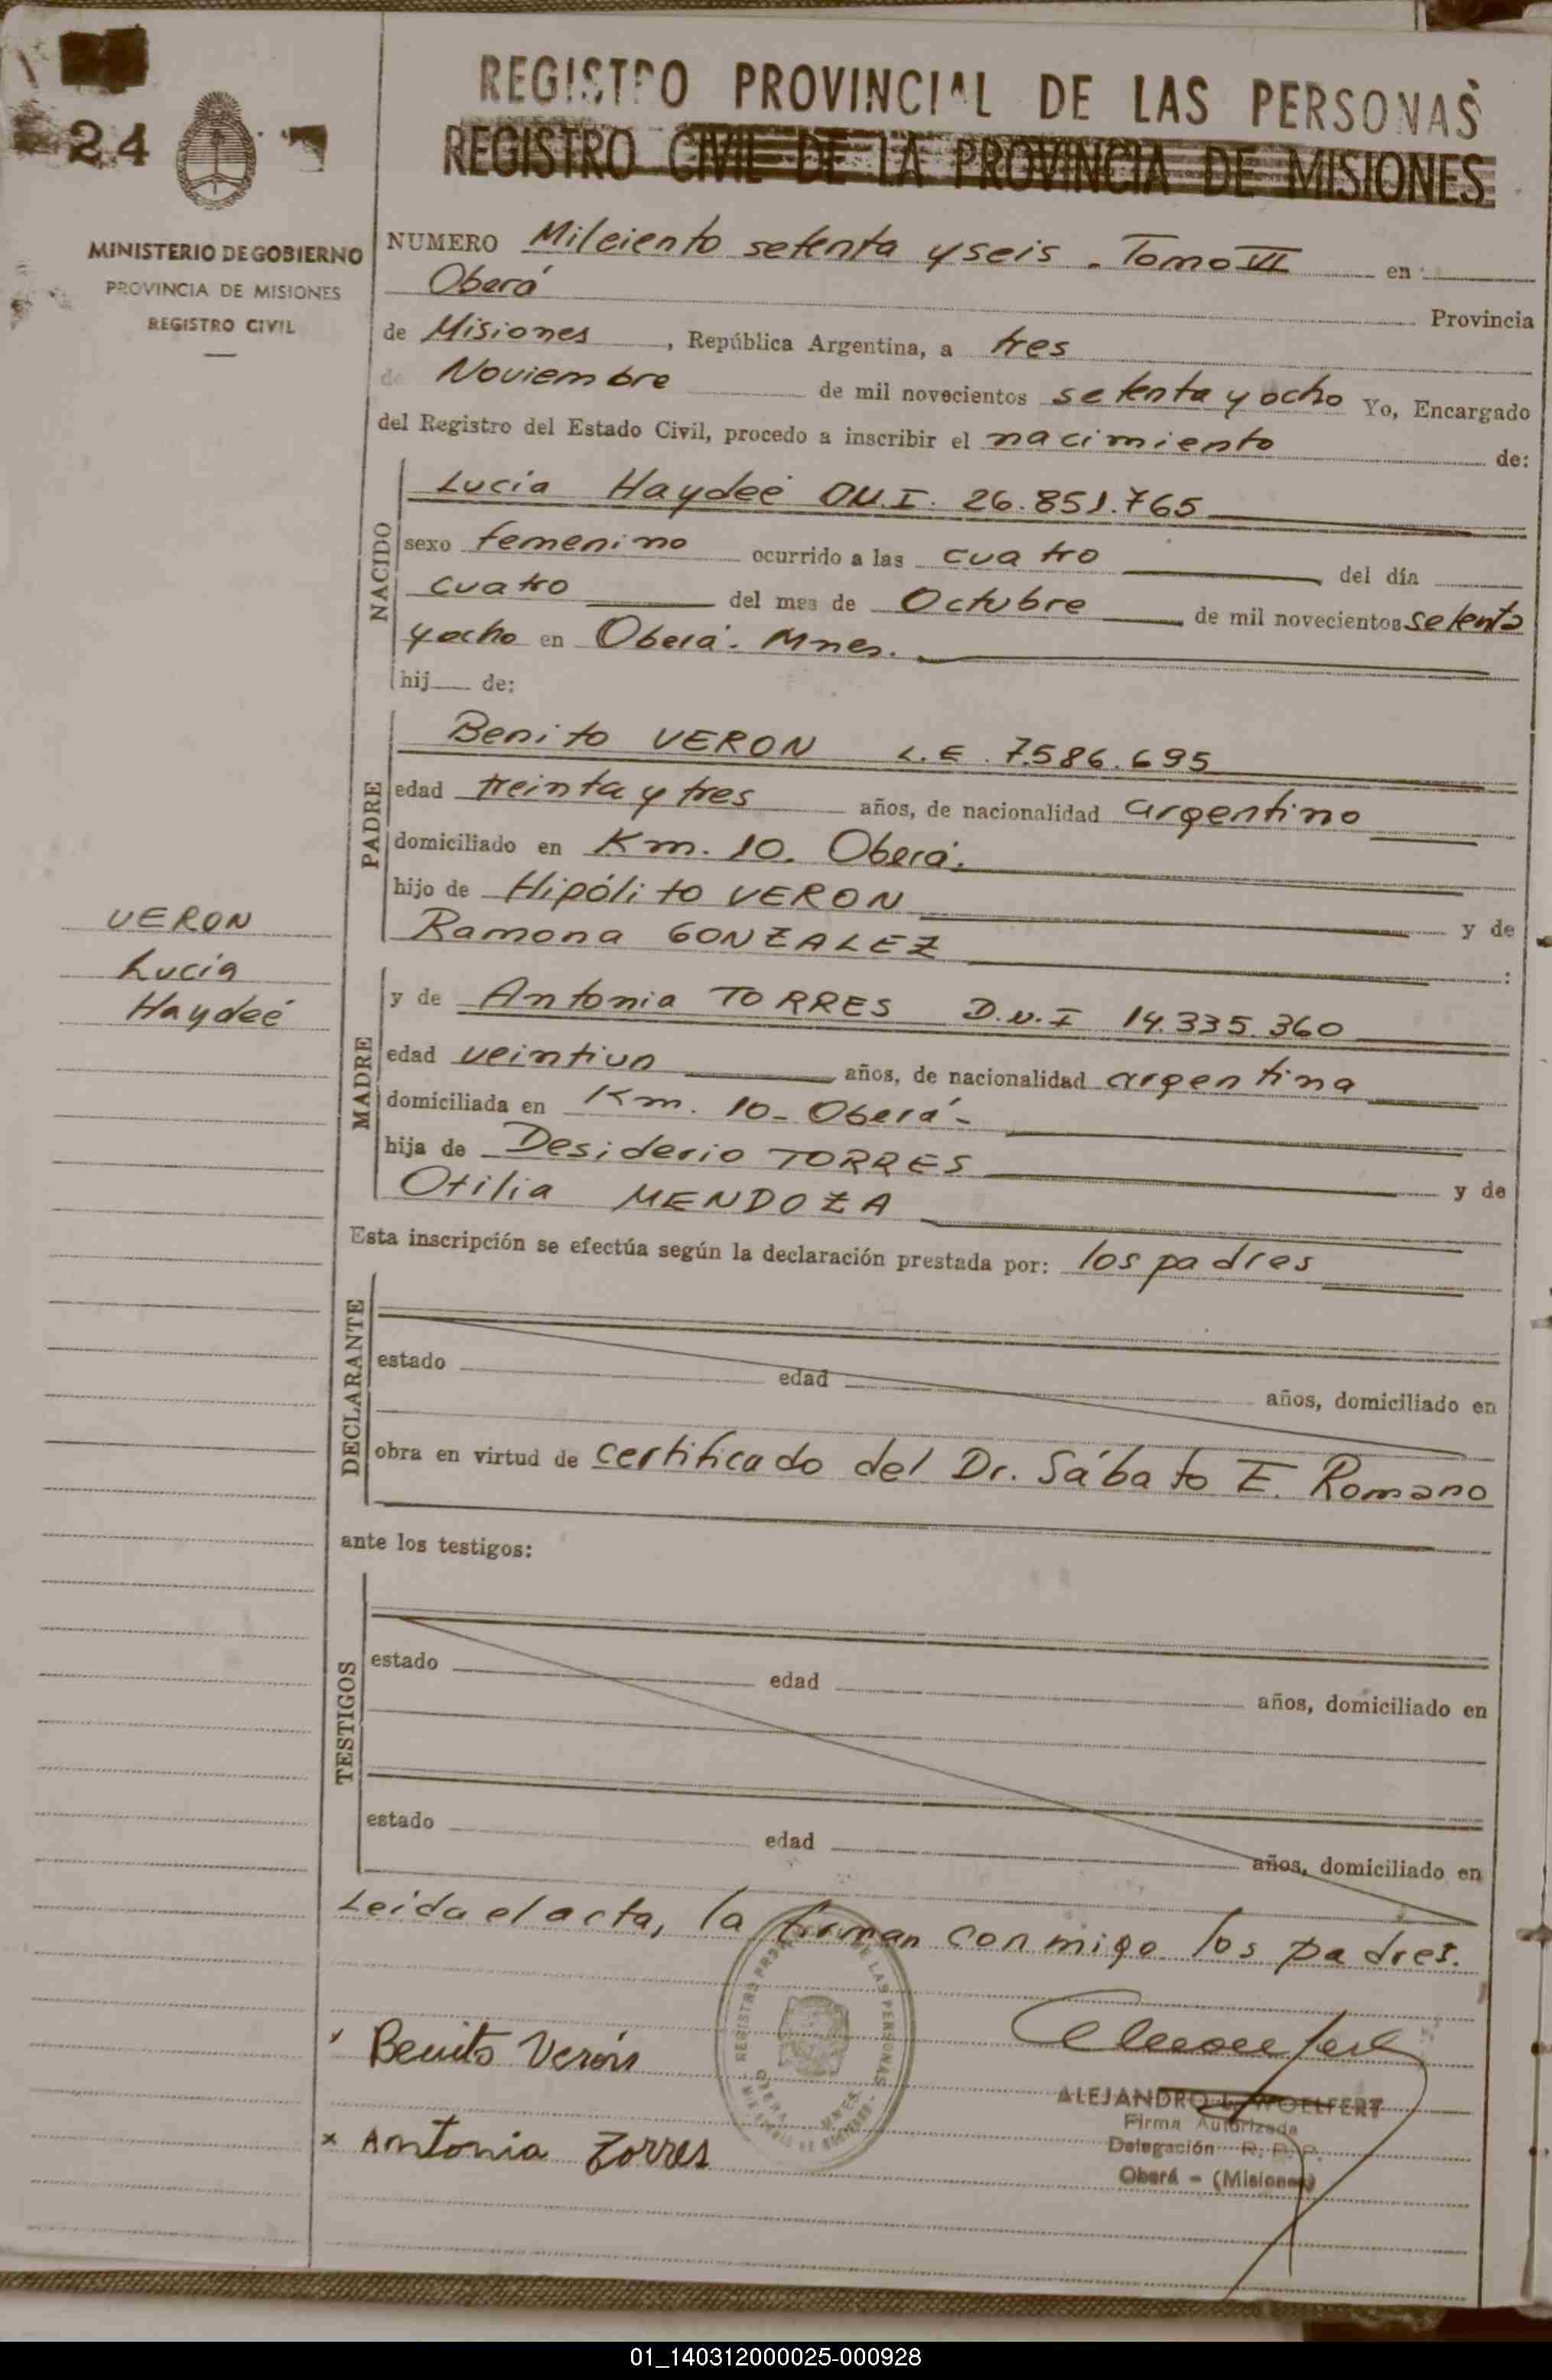 24
MINISTERIO DE GOBIERNO
PROVINCIA DE MISIONES
REGISTRO CIVIL
REGISTRO PROVINCIAL DE LAS PERSONAS
REGISTRO CIVIL DE LA PROVINCIA DE MISIONES
NUMERO Milciento setenta y seis. Tomo VI en
Oberá Provincia
de Misiones, República Argentina, a tres
de Noviembre de mil novecientos setenta y ocho Yo, Encargado
del Registro del Estado Civil, procedo a inscribir el nacimiento de:
NACIDO
Lucia Haydeé D.N.I. 26.851.765
sexo femenino ocurrido a las cuatro del día
cuatro del mes de Octubre de mil novecientos setenta
y ocho en Oberá. Mnes.
hij de:
PADRE
Benito VERON L.E. 7.586.695
edad treinta y tres años, de nacionalidad argentino
domiciliado en Km. 10. Oberá.
hijo de Hipólito VERON y de
Ramona GONZALEZ :
VERON
Lucia
Haydeé
MADRE
y de Antonia TORRES D.N.I 14.335.360
edad veintiun años, de nacionalidad argentina
domiciliada en Km. 10- Oberá-
hija de Desiderio TORRES y de
Otilia MENDOZA
Esta inscripción se efectúa según la declaración prestada por: los padres
DECLARANTE
estado edad años, domiciliado en
obra en virtud de certificado del Dr. Sábato E. Romano
ante los testigos:
TESTIGOS
estado edad años, domiciliado en
estado edad años, domiciliado en
Leida el acta, la firman conmigo los padres.
Benito Verón
x Antonia Torres
REGISTRO DE LAS PERSONAS
OBERA MNES.
ALEJANDRO WOELFERT
Firma Autorizada
Delegación R. P. P.
Oberá - (Misiones)
01_140312000025-000928